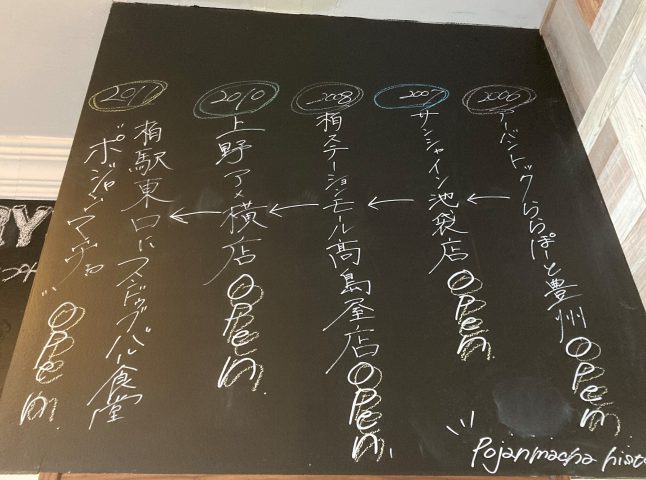 2006
アーバントックららぽーと豊州 OPen
2007
サンシャイン池袋店 OPen
2008
柏ステーションモール髙島屋店 OPen
2010
上野アメ横店 OPen
2011
柏駅東口にスンドゥブバル食堂
"ポジャンマチャ" OPen
Pojanmacha histo